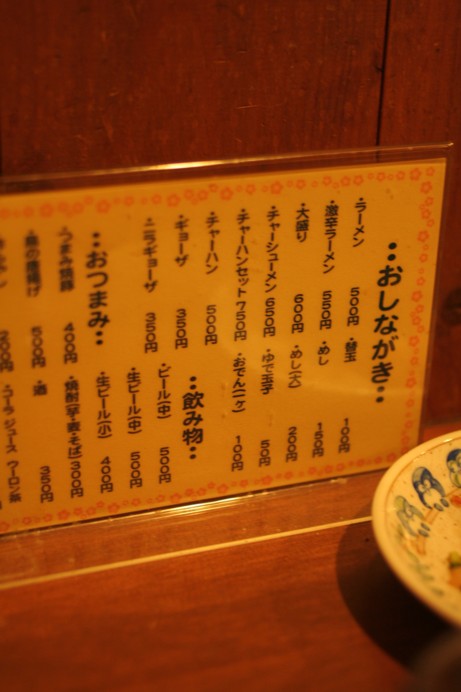 :おしながき:
・ラーメン 500円
・激辛ラーメン 550円
・大盛り 600円
・チャーシューメン 650円
・チャーハンセット 750円
・チャーハン 500円
・ギョーザ 350円
・ニラギョーザ 350円
・替玉 100円
・めし 150円
・めし(大) 200円
・ゆで玉子 50円
・おでん(一ヶ) 100円
:飲み物:
・ビール(中) 500円
・生ビール(中) 500円
・生ビール(小) 400円
・焼酎(芋・麦・そば) 300円
・酒 350円
・コーラ ジュース ウーロン茶
:おつまみ:
・つまみ焼豚 400円
500円
200円